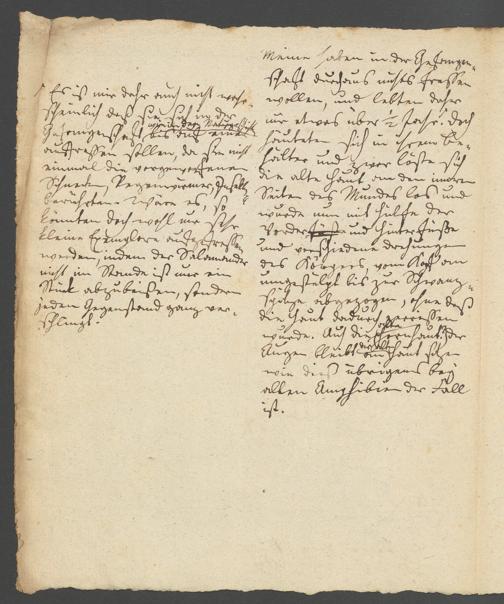 Es ist mir daher auch nicht wahr-
scheinlich daß sie sich in der
Gefangenschaft
auffressen sollen, da sie nicht
einmal die vorgeworfenen
Schnecken, Regenwürmer,
berührten. Wäre es, so
könnten doch wohl nur sehr
kleine Exemplare aufgefressen
werden, indem der Salamander
nicht im Stande ist nur ein
Stück abzubeißen, sondern
jeden Gegenstand ganz ver-
schlingt.
Meine haben in der Gefangen-
schaft durchaus nichts fressen
wollen, und lebten daher
nur etwas über ½ Jahr. Doch
häuteten sich in ihrem Be-
hälter und zwar löste sich
die alte Haut an den inneren
Seiten des Mundes los und
wurde nun mit Hilfe der
Vorder und Hinterfüße
und verschiedene Drehungen
des Körpers, vom Kopf an
umgestülpt bis zur Schwanz-
spitze abgezogen, ohne daß
die Haut dadurch zerrissen
wurde. Auch die Hornhaut der
Augen bleibt Haut
wie dies übrigens bey
allen Amphibien der Fall
ist.